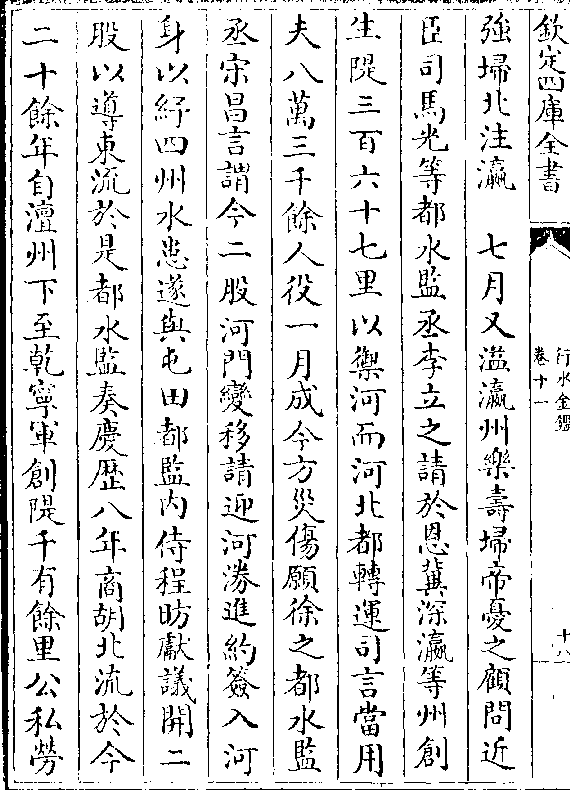 欽定四庫全書
行水金鑑
卷十一
十八
強埽北注瀛　七月又溢瀛州樂壽埽帝憂之顧問近
臣司馬光等都水監丞李立之請於恩冀深瀛等州創
生隄三百六十七里以禦河而河北都轉運司言當用
夫八萬三千餘人役一月成今方災傷願徐之都水監
丞宋昌言謂今二股河門變移請迎河港進約簽入河
身以紓四州水患遂與屯田都監内侍程昉獻議開二
股以導東流於是都水監奏慶歷八年商胡北流於今
二十餘年自澶州下至乾寧軍創隄千有餘里公私勞